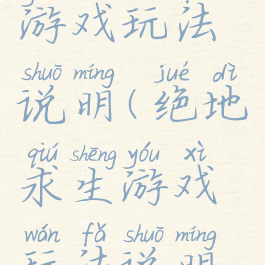 游戏玩法
shuō míng jué dì
说明(绝地
qiú shēng yóu xì
求生游戏
wán fǎ shuō míng
玩法说明